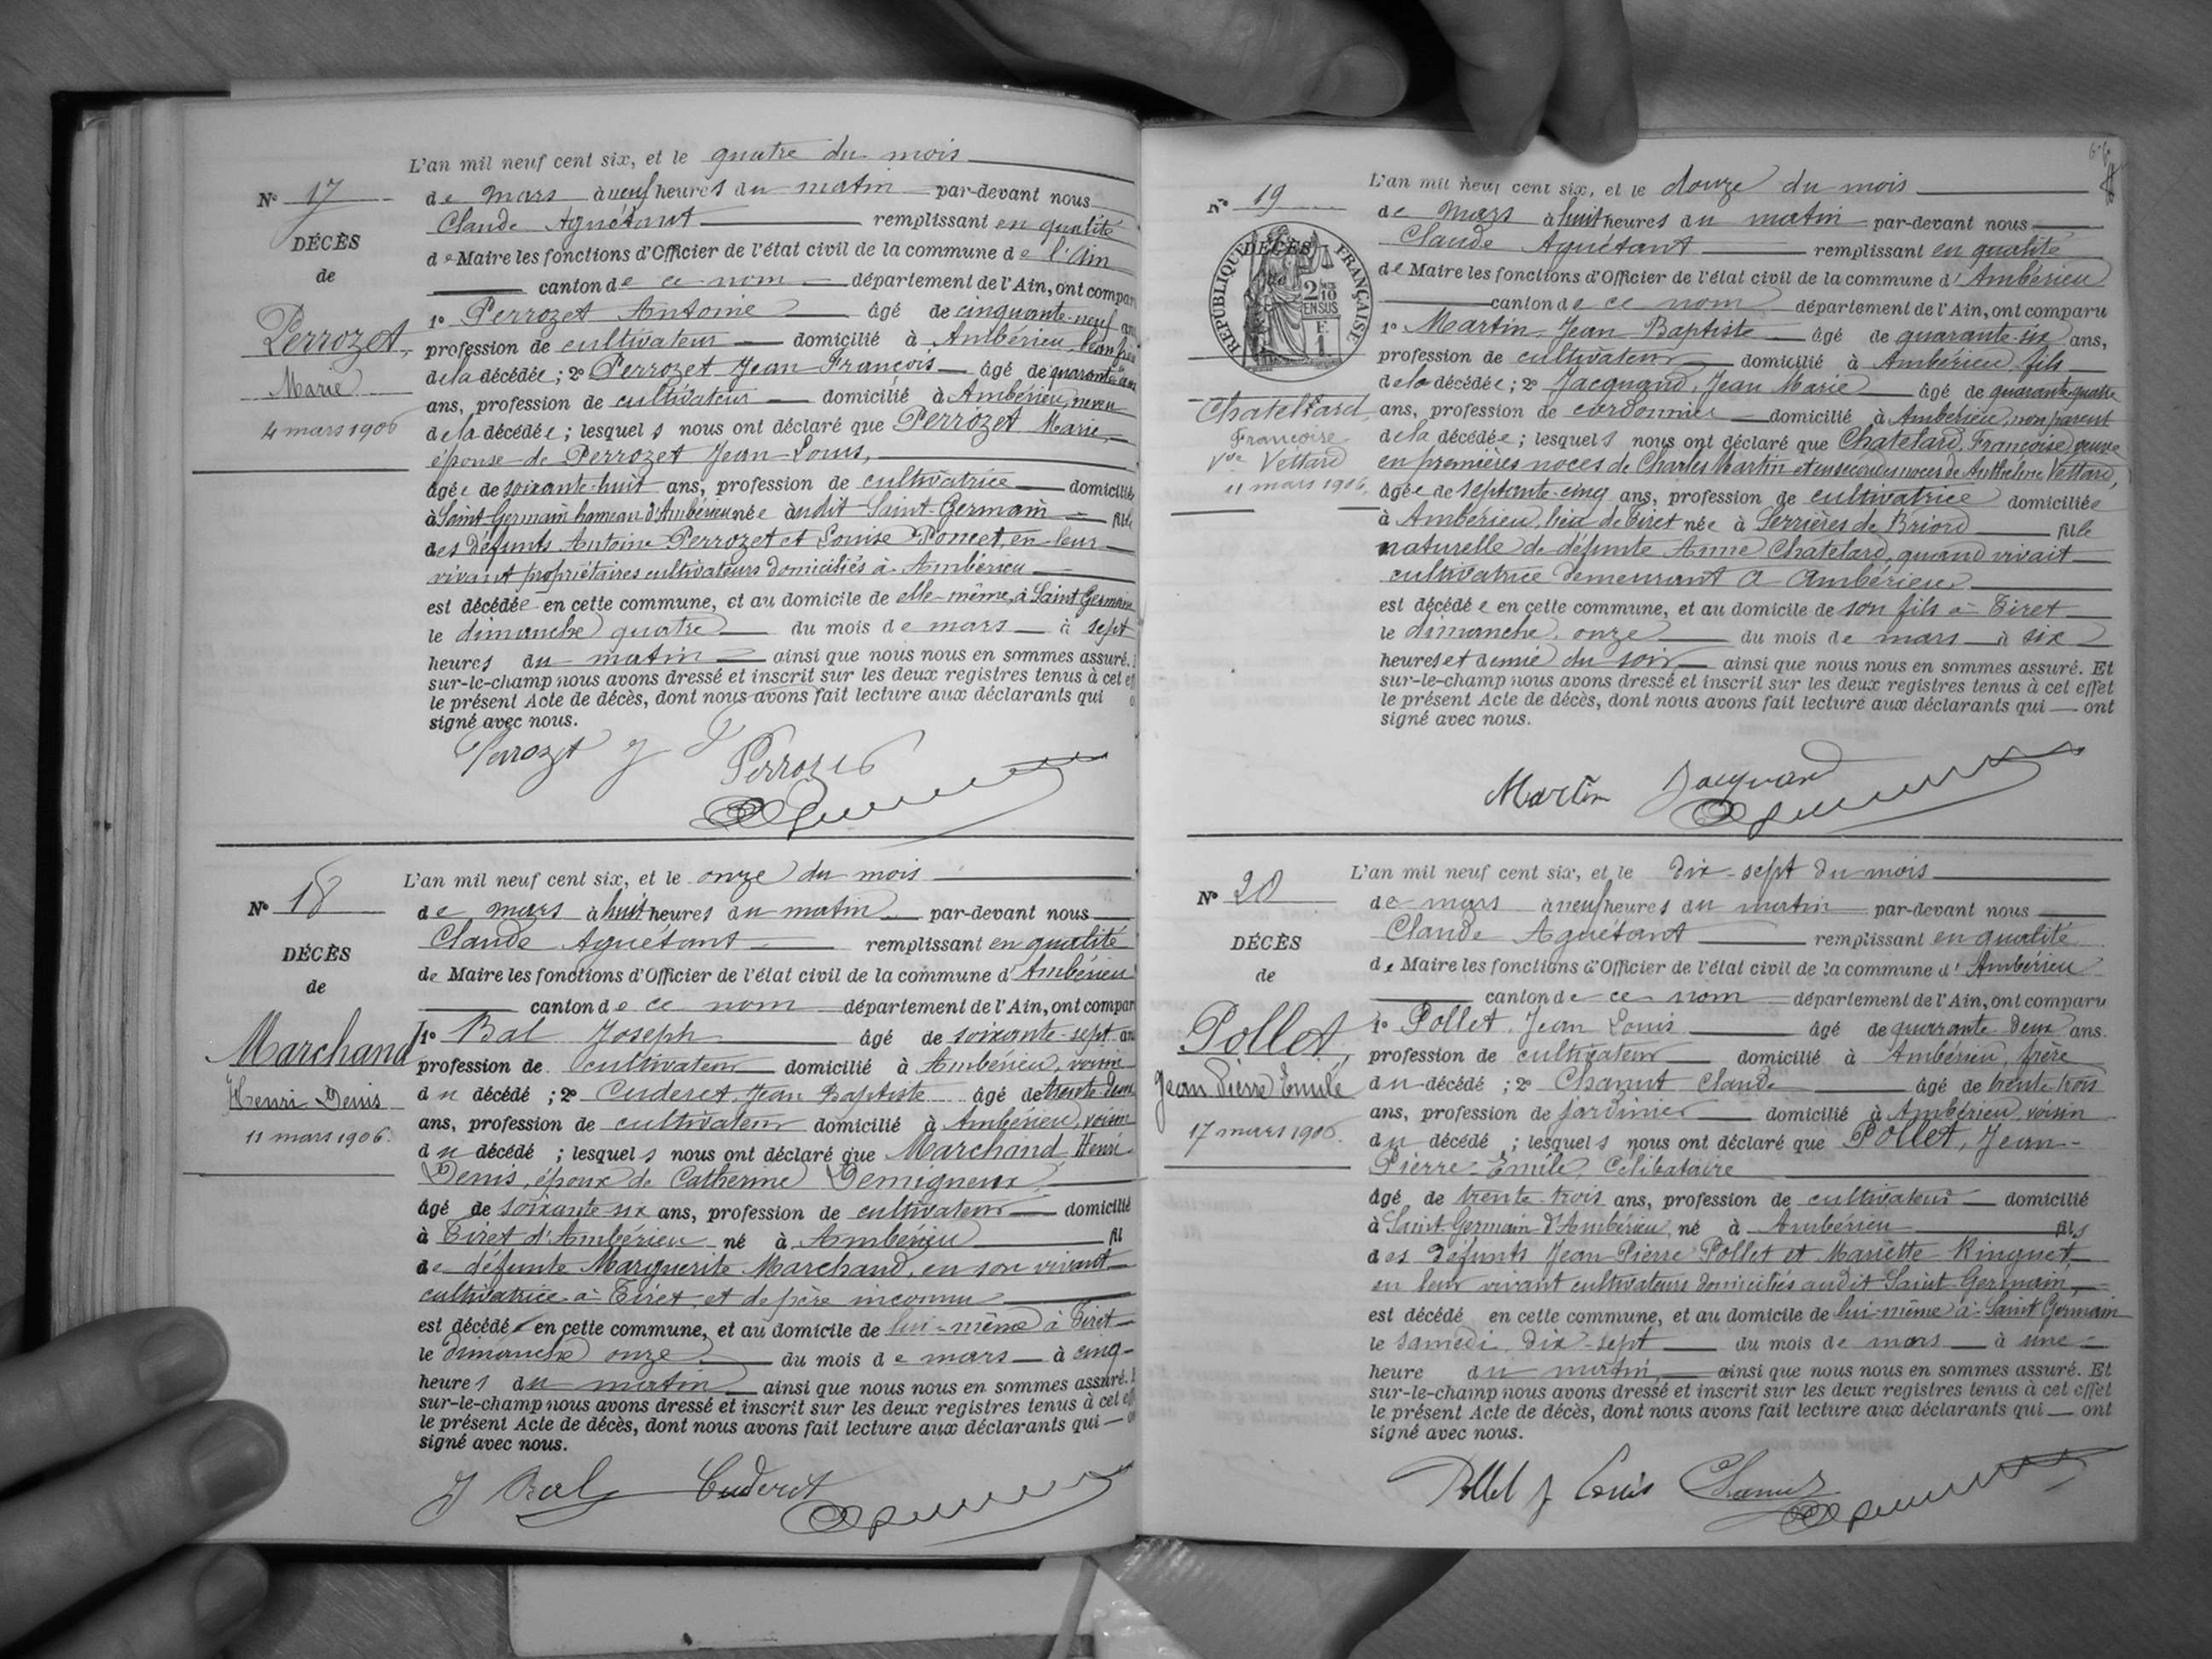 L'an mil neuf cent six, et le quatre du mois
N° 17
de mars à neuf heures du matin par-devant nous
Claude Aguétant remplissant en qualité
DÉCÈS
de Maire les fonctions d'Officier de l'état civil de la commune de l'Ain
de
canton de ce nom département de l'Ain, ont compar
Perrozet,
1° Perrozet Antoine âgé de cinquante-neuf an
profession de cultivateur domicilié à Ambérieu, beau frère
Marie
de la décédée; 2° Perrozet Jean François âgé de quarante
ans, profession de cultivateur domicilié à Ambérieu, neveu
4 mars 1906
de la décédée; lesquels nous ont déclaré que Perrozet Marie,
épouse de Perrozet Jean-Louis,
âgée de soixante-huit ans, profession de cultivatrice domiciliée
à Saint-Germain hameau d'Ambérieu née audit Saint-Germain fille
des défunts Antoine Perrozet et Louise Poncet, en leur
vivant propriétaires cultivateurs domiciliés à Ambérieu
est décédée en cette commune, et au domicile de elle-même, à Saint Germain
le dimanche quatre du mois de mars à sept
heures du matin ainsi que nous nous en sommes assuré.
sur-le-champ nous avons dressé et inscrit sur les deux registres tenus à cet e
le présent Acte de décès, dont nous avons fait lecture aux déclarants qui
signé avec nous.
Perrozet J Perrozet
L'an mil neuf cent six, et le onze du mois
N° 18
de mars à huit heures du matin par-devant nous
Claude Aguétant remplissant en qualité
DÉCÈS
de Maire les fonctions d'Officier de l'état civil de la commune d'Ambérieu
de
canton de ce nom département de l'Ain, ont compar
Marchand
1° Bal Joseph âgé de soixante-sept an
profession de cultivateur domicilié à Ambérieu, voisin
Henri Denis
du décédé ; 2° Cuderet, Jean Baptiste âgé de trente-deux
11 mars 1906.
ans, profession de cultivateur domicilié à Ambérieu, voisin
du décédé ; lesquels nous ont déclaré que Marchand, Henri
Denis, époux de Catherine Demigneux,
âgé de soixante-six ans, profession de cultivateur domicilié
à Tiret d'Ambérieu né à Ambérieu fil
de défunte Marguerite Marchand, en son vivant
cultivatrice à Tiret, et de père inconnu
est décédé en cette commune, et au domicile de lui-même à Tiret
le dimanche onze du mois de mars à cinq
heures du matin ainsi que nous nous en sommes assuré.
sur-le-champ nous avons dressé et inscrit sur les deux registres tenus à cet e
le présent Acte de décès, dont nous avons fait lecture aux déclarants qui
signé avec nous.
J Bal Cuderet
L'an mil neuf cent six, et le douze du mois
N° 19
de mars à huit heures du matin par-devant nous
Claude Aguétant remplissant en qualité
DÉCÈS
RÉPUBLIQUE FRANÇAISE
2/10 EN SUS
F. 1
de Maire les fonctions d'Officier de l'état civil de la commune d'Ambérieu
canton de ce nom département de l'Ain, ont comparu
1° Martin, Jean Baptiste âgé de quarante-six ans,
profession de cultivateur domicilié à Ambérieu fils
de la décédée; 2° Jacquand, Jean Marie âgé de quarante-quatre
Chatellard,
ans, profession de cordonnier domicilié à Ambérieu, non parent
Françoise
de la décédée; lesquels nous ont déclaré que Chatelard, Françoise, veuve
Vve Vettard
en premières noces de Charles Martin et en secondes noces de Anthelme Vettard,
11 mars 1906.
âgée de septante-cinq ans, profession de cultivatrice domiciliée
à Ambérieu, lieu de Tiret née à Serrières de Briord fille
naturelle de défunte Anne Chatelard, quand vivait
cultivatrice demeurant à Ambérieu
est décédée en cette commune, et au domicile de son fils à Tiret
le dimanche onze du mois de mars à six
heures et demie du soir ainsi que nous nous en sommes assuré. Et
sur-le-champ nous avons dressé et inscrit sur les deux registres tenus à cet effet
le présent Acte de décès, dont nous avons fait lecture aux déclarants qui ont
signé avec nous.
Martin Jacquand
L'an mil neuf cent six, et le dix-sept du mois
N° 20
de mars à neuf heures du matin par-devant nous
Claude Aguétant remplissant en qualité
DÉCÈS
de Maire les fonctions d'Officier de l'état civil de la commune d'Ambérieu
de
canton de ce nom département de l'Ain, ont comparu
Pollet,
1° Pollet, Jean Louis âgé de quarante-deux ans.
profession de cultivateur domicilié à Ambérieu, frère
Jean Pierre Emile
du décédé ; 2° Chanut Claude âgé de trente-trois
ans, profession de jardinier domicilié à Ambérieu, voisin
17 mars 1906.
du décédé ; lesquels nous ont déclaré que Pollet, Jean-
Pierre-Emile, Célibataire
âgé de trente-trois ans, profession de cultivateur domicilié
à Saint-Germain d'Ambérieu, né à Ambérieu fils
des défunts Jean-Pierre Pollet et Mariette Ringuet,
en leur vivant cultivateurs domiciliés audit Saint-Germain,
est décédé en cette commune, et au domicile de lui-même à Saint Germain
le samedi dix-sept du mois de mars à une
heure du matin, ainsi que nous nous en sommes assuré. Et
sur-le-champ nous avons dressé et inscrit sur les deux registres tenus à cet effet
le présent Acte de décès, dont nous avons fait lecture aux déclarants qui ont
signé avec nous.
Pollet J Louis Chanut